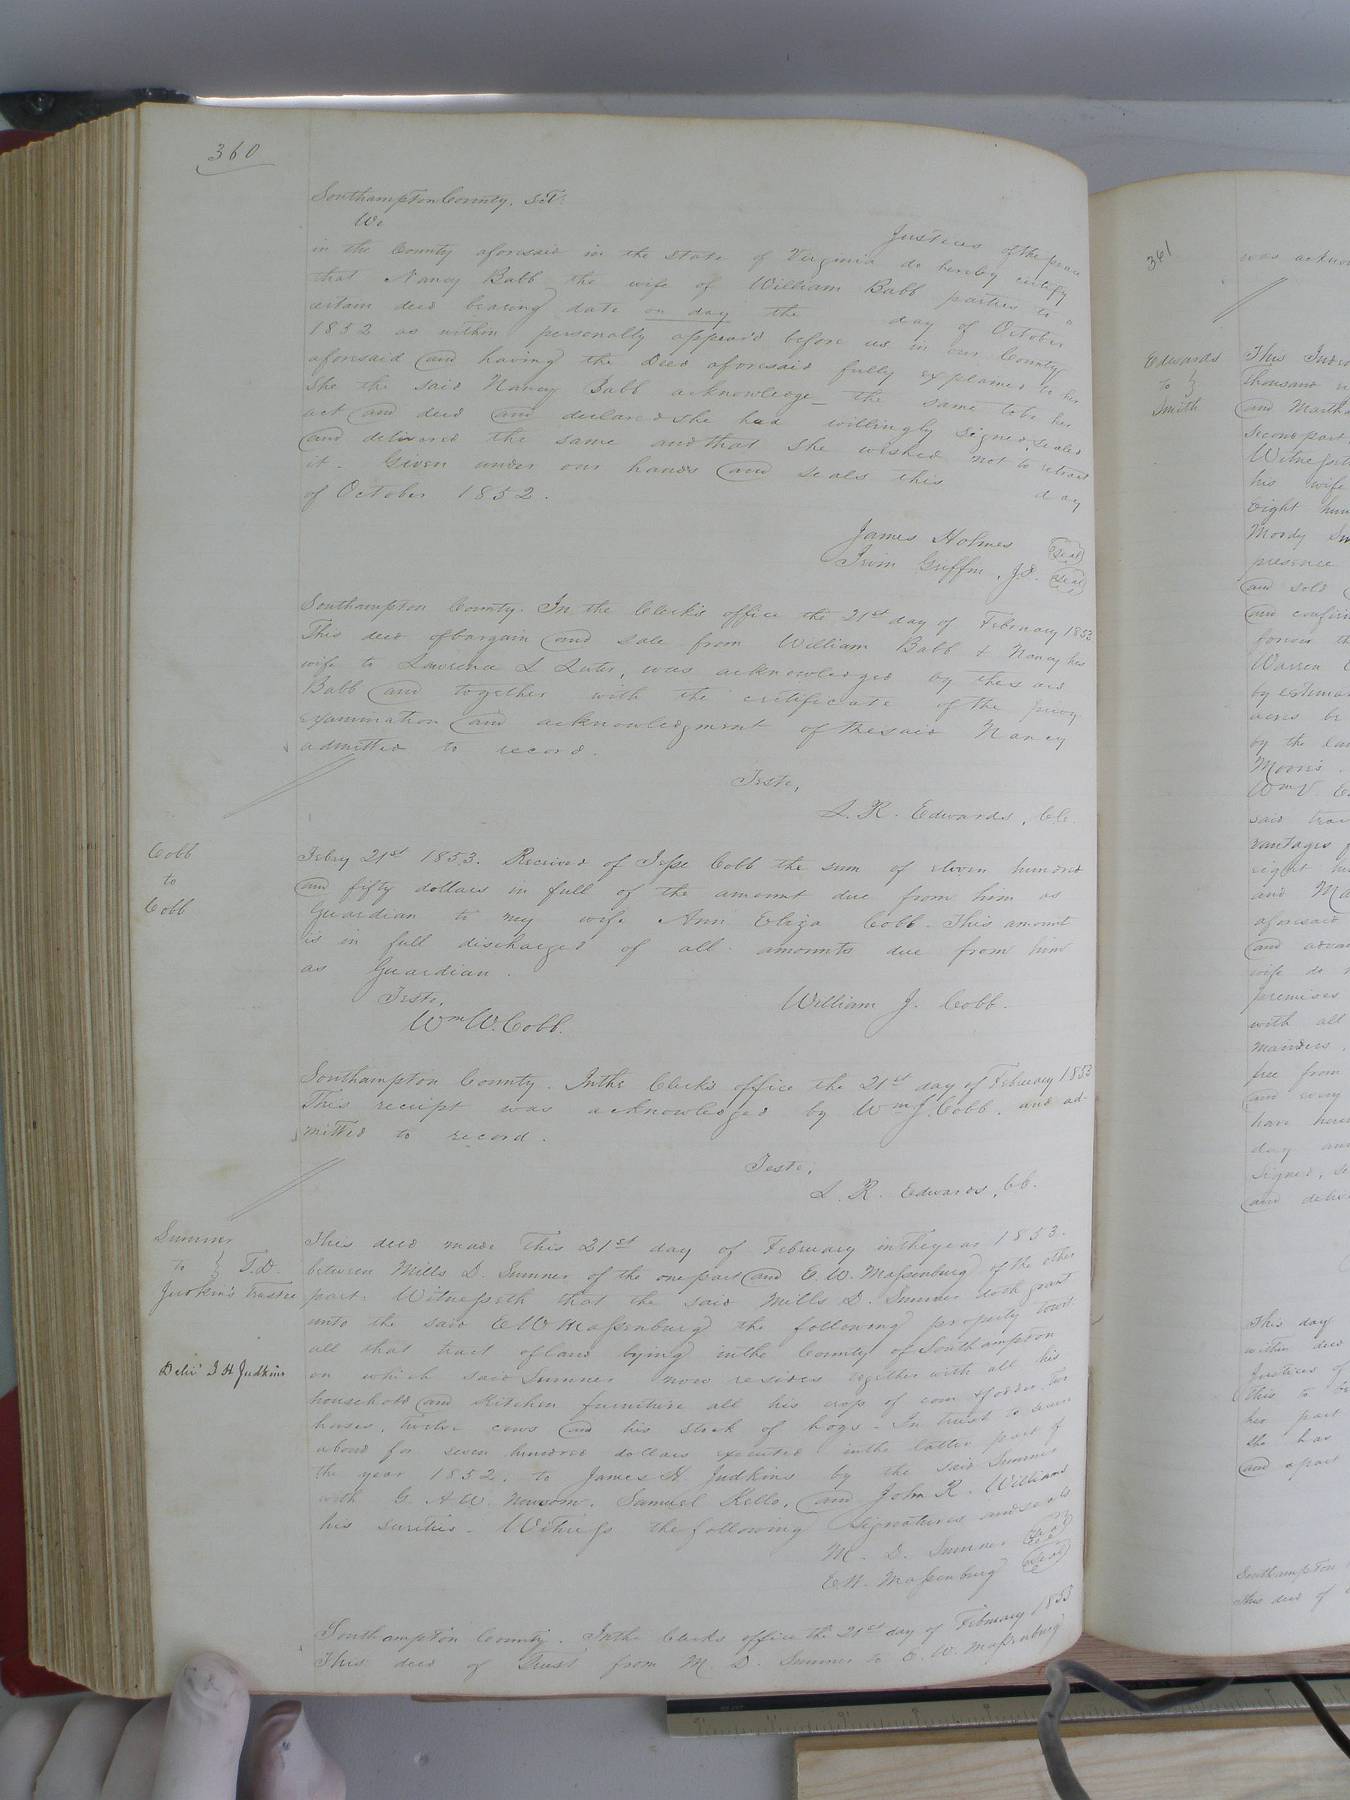 360
Southampton County. Sct:
We Justices of the peace
in the County aforesaid in the State of Virginia do hereby certify
that Nancy Babb the wife of William Babb parties to a
certain deed bearing date on day the day of October
1852 as within personally appear'd before us in our County
aforesaid and having the Deed aforesaid fully explained to her
She the said Nancy Babb acknowledge the same to be her
act and deed and declared she had willingly signed, sealed
and delivered the same and that she wished not to retract
it. Given under our hands and seals this day
of October 1852.
James Holmes Seal
Irvin Griffin, J.P. Seal
Southampton County. In the Clerk's office the 21st day of February 1853
This deed of bargain and sale from William Babb & Nancy his
wife to L Luter, was acknowledged by the said
Babb and together with the certificate of the privy
examination and acknowledgment of the said Nancy
admitted to record.
Teste,
L. R. Edwards, CC.
Cobb
to
Cobb
Febry 21st 1853. Received of Jesse Cobb the sum of eleven hundred
and fifty dollars in full of the amount due from him as
Guardian to my wife Ann Eliza Cobb. This amount
is in full discharged of all amounts due from him
as Guardian.
Teste, William J. Cobb.
Wm W. Cobb.
Southampton County. In the Clerk's office the 21st day of February 1853
This receipt was acknowledged by Wm J. Cobb. and ad-
mitted to record.
Teste,
L. R. Edwards, CC.
Sumner
to } T.D.
Judkin's Trustee
Deliv' J H Judkins
This deed made this 21st day of February in the year 1853.
between Mills D. Sumner of the one part and E. W. Massenburg of the other
part. Witnesseth that the said Mills D. Sumner doth grant
unto the said E W Massenburg the following property towit
all that tract of land lying in the County of Southampton
on which said Sumner now resides together with all his
household and kitchen furniture all his crop of corn & fodder, two
horses, twelve cows and his stock of hogs - In trust to secure
a bond for seven hundred dollars executed in the latter part of
the year 1852, to James H. Judkins by the said Sumner
with G. A. W. Newsom, Samuel Kello, and John R. Williams
his sureties. Witness the following signatures and seals
M. D. Sumner Seal
E. W. Massenburg Seal
Southampton County. In the Clerks office the 21st day of February 1853
This deed of Trust from M. D. Sumner to E. W. Massenburg
361
was acknow
Edwards
to }
Smith
This Inde
Thousand
and Martha
second part,
Witnesseth
his wife
Eight hun
Moody
presence
and sold
and confir
forever th
Warren
by estima
acres be
by the lan
Morris
Wm V.
said trac
vantages
right
and Ma
aforesaid
and
wife do
premises
with all
free from
and every
have here
day and
Signed, se
and deliv
This day
within deed
Justices of
this to be
her part
she has
and apart
Southampton
This deed of